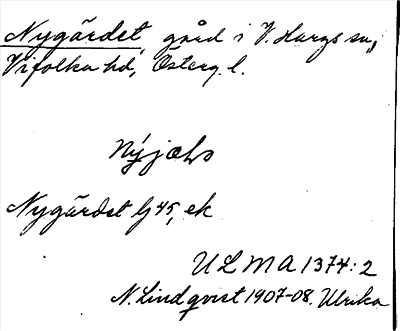 Nygärdet, gård i V. Hargs sn,
Vifolka hd, Österg. l.
Nygärdet lj 45, ek
ULMA 1374:2
N. Lindqvist 1907-08. Ulrika